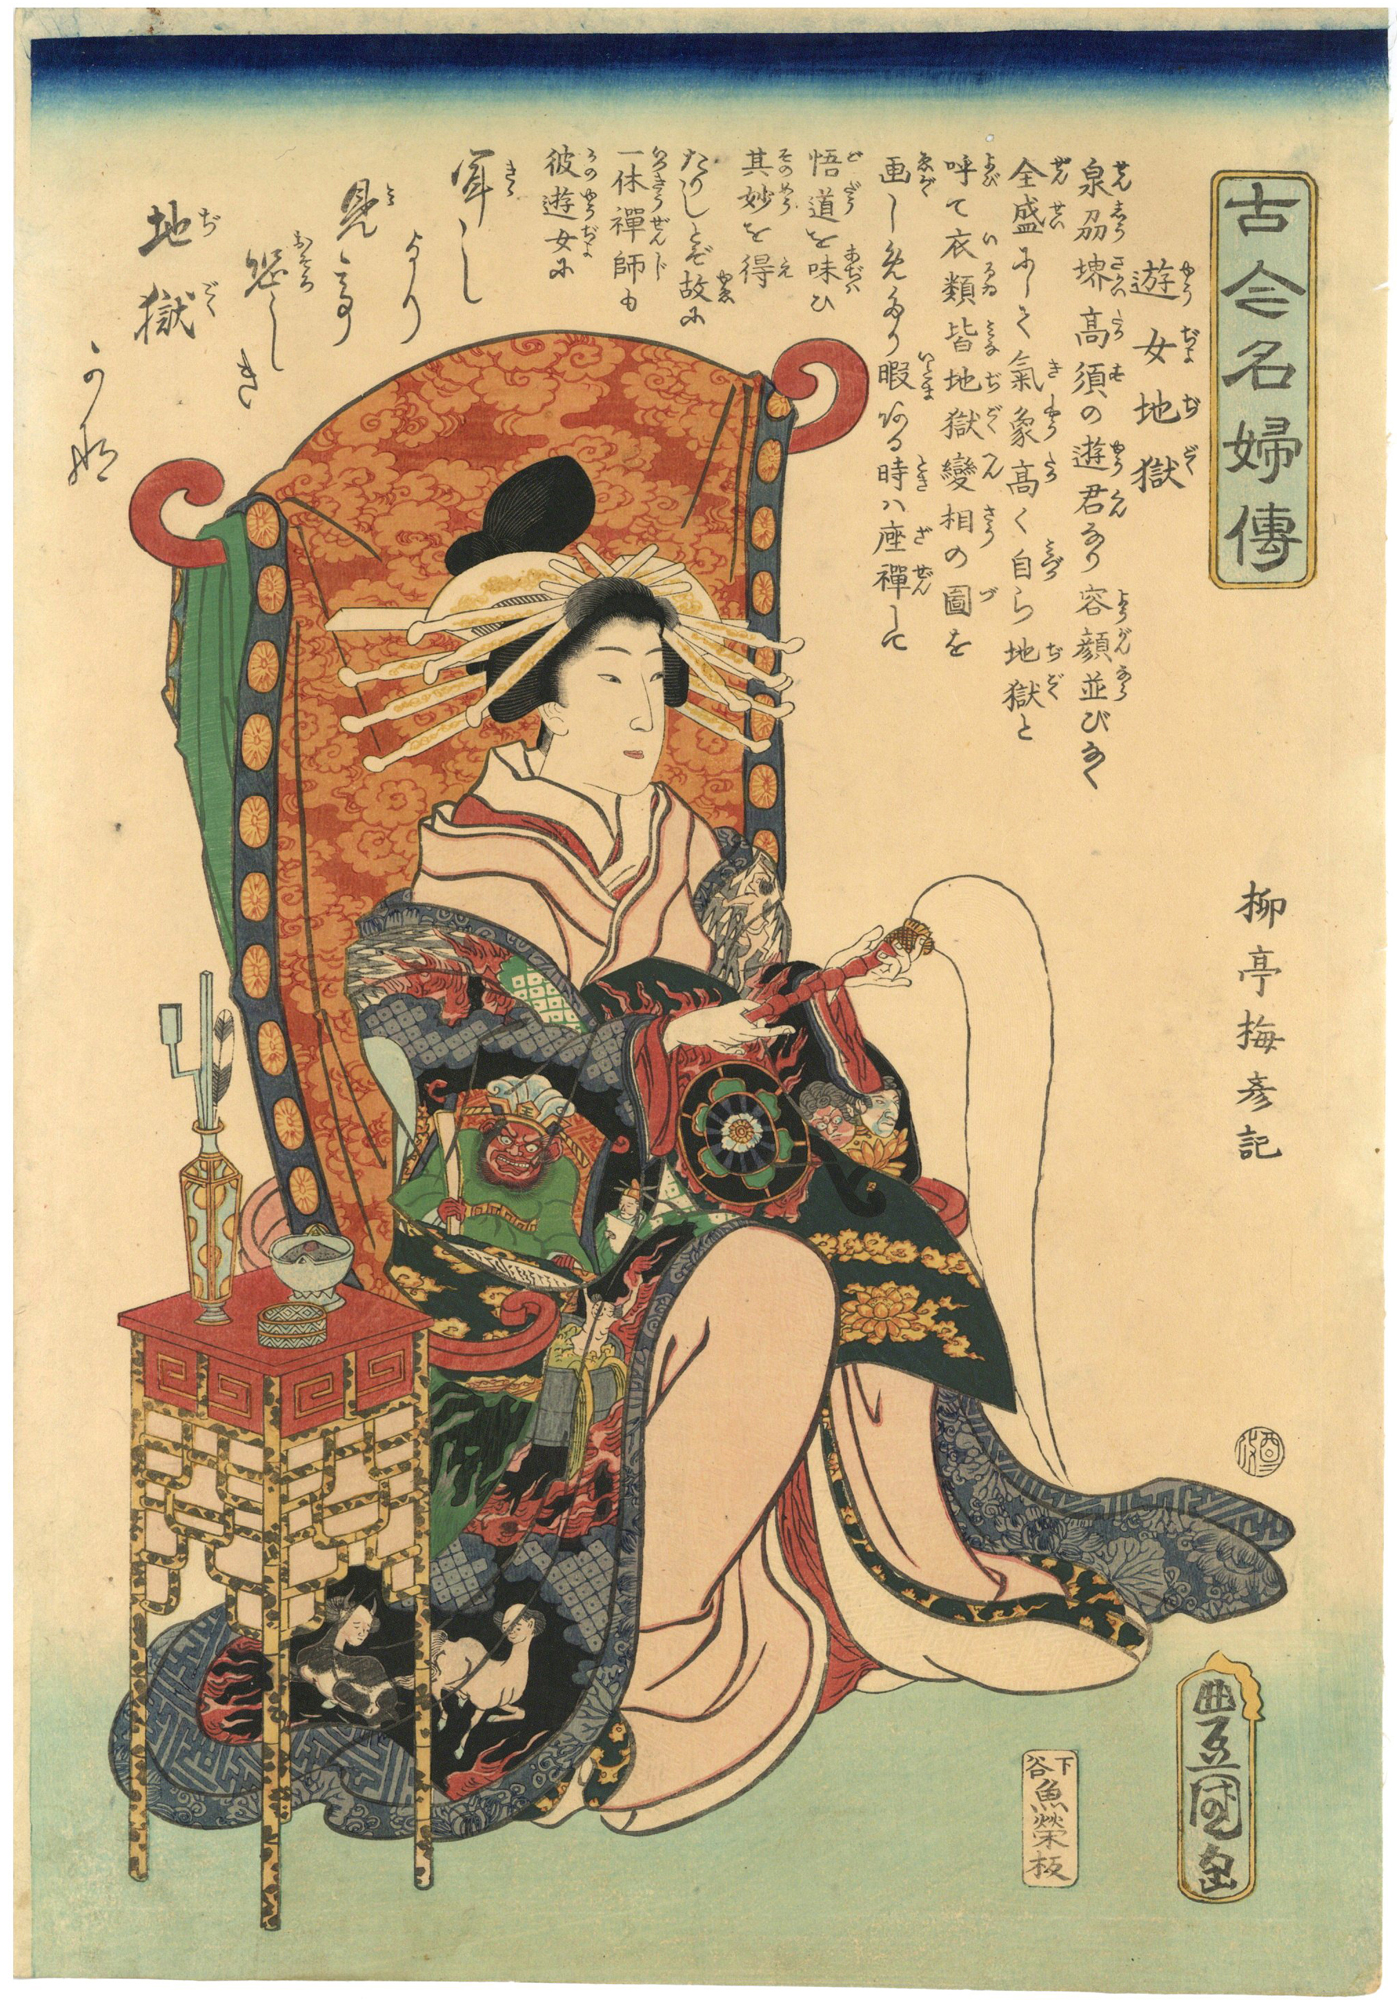 古今名婦傳
遊女地獄
泉刕堺高須の遊君なり容顔並びなく
全盛にして氣象高く自ら地獄と
呼て衣類皆地獄變相の圖を
画しめたり暇ある時ハ座禪して
悟道を味ひ
其妙を得
たりしとぞ故に
一休禪師も
彼遊女に
聞しより
見て
恐しき
地獄かな
柳亭梅彦記
豊国画
下谷
魚榮板